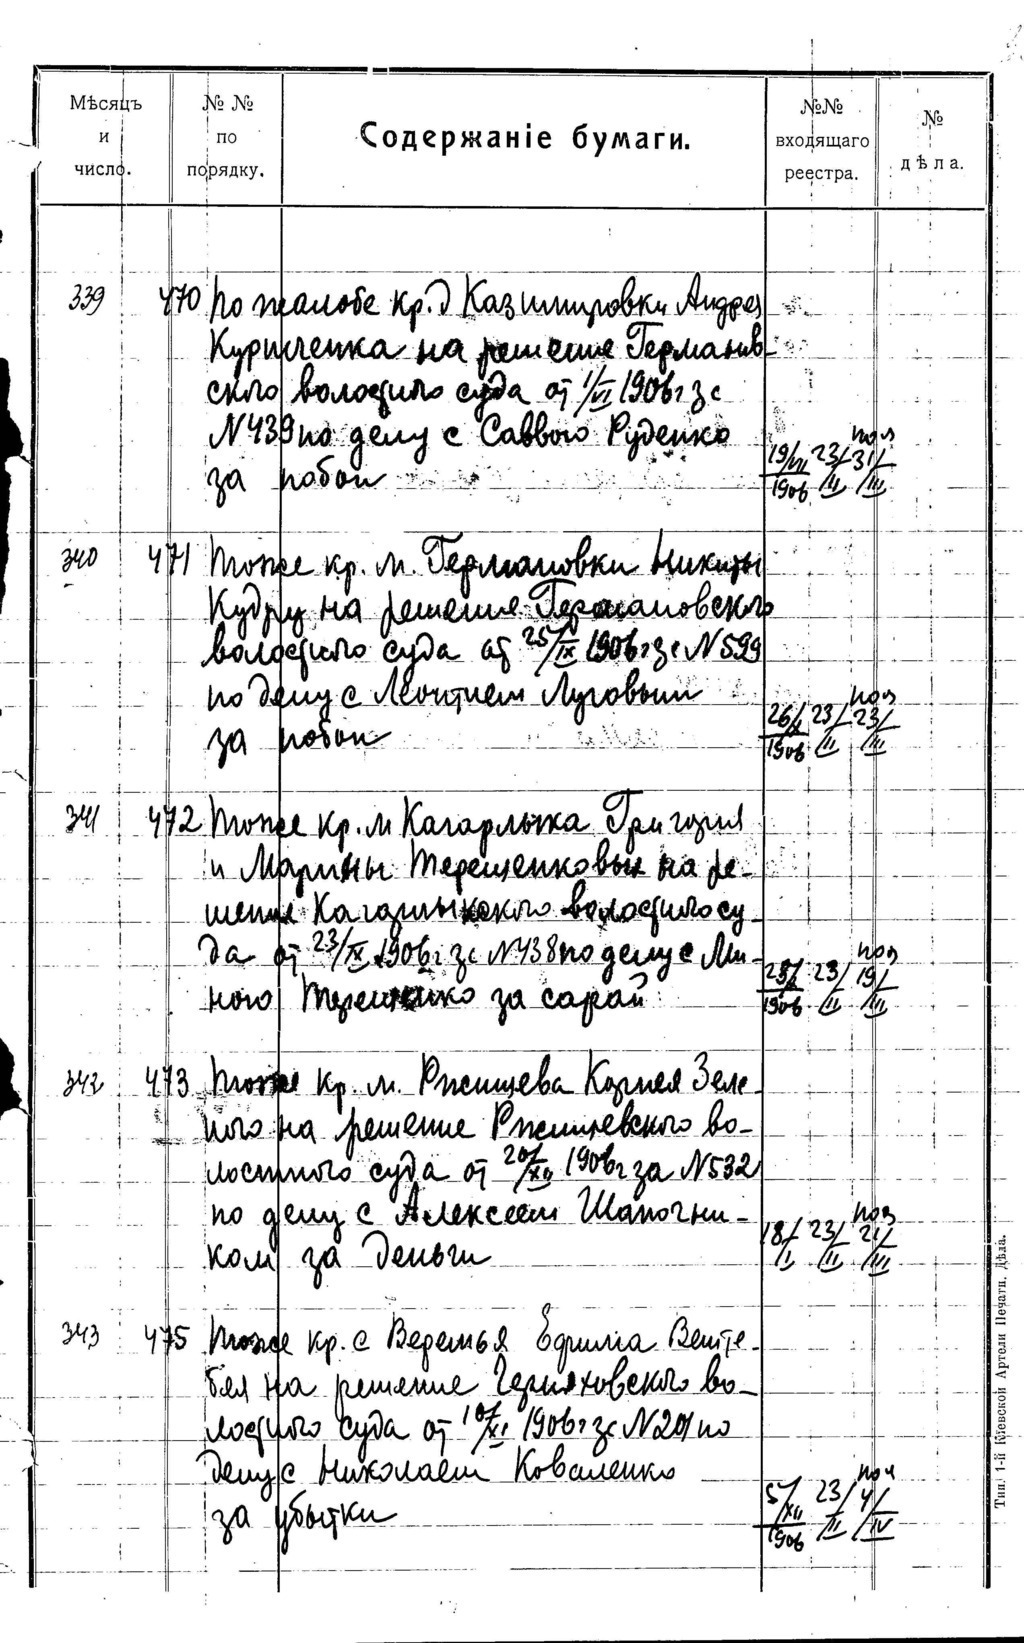 Мѣсяцъ
и
число.
№ №
по
порядку.
Содержаніе бумаги.
№№
входящаго
реестра.
№
дѣла.
339 470 По жалобе кр. д Казимировки Андрея
на решение Германов-
ского волостного суда от 1/VI 1906 г за
N 439 по делу с Саввою Руденко
за побои
19/VII 1906 23/II 31/III
340 471 Тоже кр. м. Германовки Никиты
Кудри на решение Германовского
волостного суда от 25/IX 1906 г за N 599
по делу с Леонтием Луговым
за побои
26/X 1906 23/II 23/III
341 472 Тоже кр. м Кагарлыка Григория
и Марины Терещенковых на ре-
шение Кагарлыкского волостного су-
да от 23/IX 1906 г за N 438 по делу с
Терещенко за сарай
1906 23/II 19/III
342 473 Тоже кр. м. Ржищева Корнея Зеле-
ного на решение Ржищевского во-
лостного суда от 20/XII 1906 г за N 532
по делу с Алексеем Шапочни-
ком за деньги
18/I 23/II 21/III
343 475 Тоже кр. с Веремья Ефима
на решение Черняховского во-
лостного суда от 10/XI 1906 г за N 201 по
делу с Николаем Коваленко
за убытки
5/XII 1906 23/II 4/IV
Тип. 1-й Кіевской Артели Печатн. Дѣла.